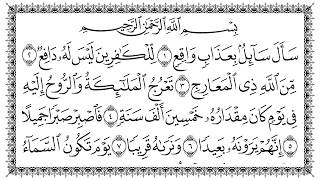 بِسْمِ اللَّهِ الرَّحْمَٰنِ الرَّحِيمِ
سَأَلَ سَآئِلٌۢ بِعَذَابٍ وَاقِعٍ ۝١ لِّلْكَٰفِرِينَ لَيْسَ لَهُۥ دَافِعٌ ۝٢
مِّنَ ٱللَّهِ ذِى ٱلْمَعَارِجِ ۝٣ تَعْرُجُ ٱلْمَلَٰٓئِكَةُ وَٱلرُّوحُ إِلَيْهِ
فِى يَوْمٍ كَانَ مِقْدَارُهُۥ خَمْسِينَ أَلْفَ سَنَةٍ ۝٤ فَٱصْبِرْ صَبْرًا جَمِيلًا
۝٥ إِنَّهُمْ يَرَوْنَهُۥ بَعِيدًا ۝٦ وَنَرَىٰهُ قَرِيبًا ۝٧ يَوْمَ تَكُونُ ٱلسَّمَآءُ